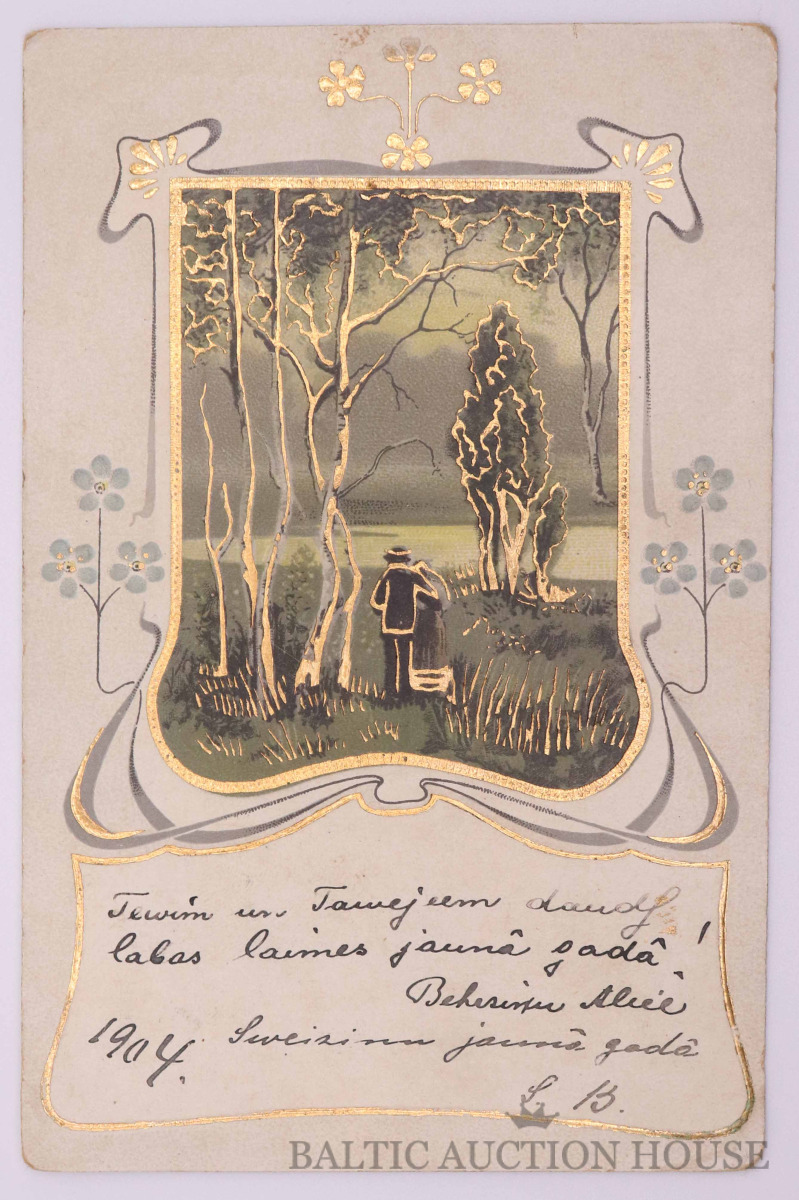 Tewim un Tawejeem daudz
labas laimes jaunâ gadâ!
Alice
1904. Sweizinu jaunâ gadâ
S. B.
BALTIC AUCTION HOUSE